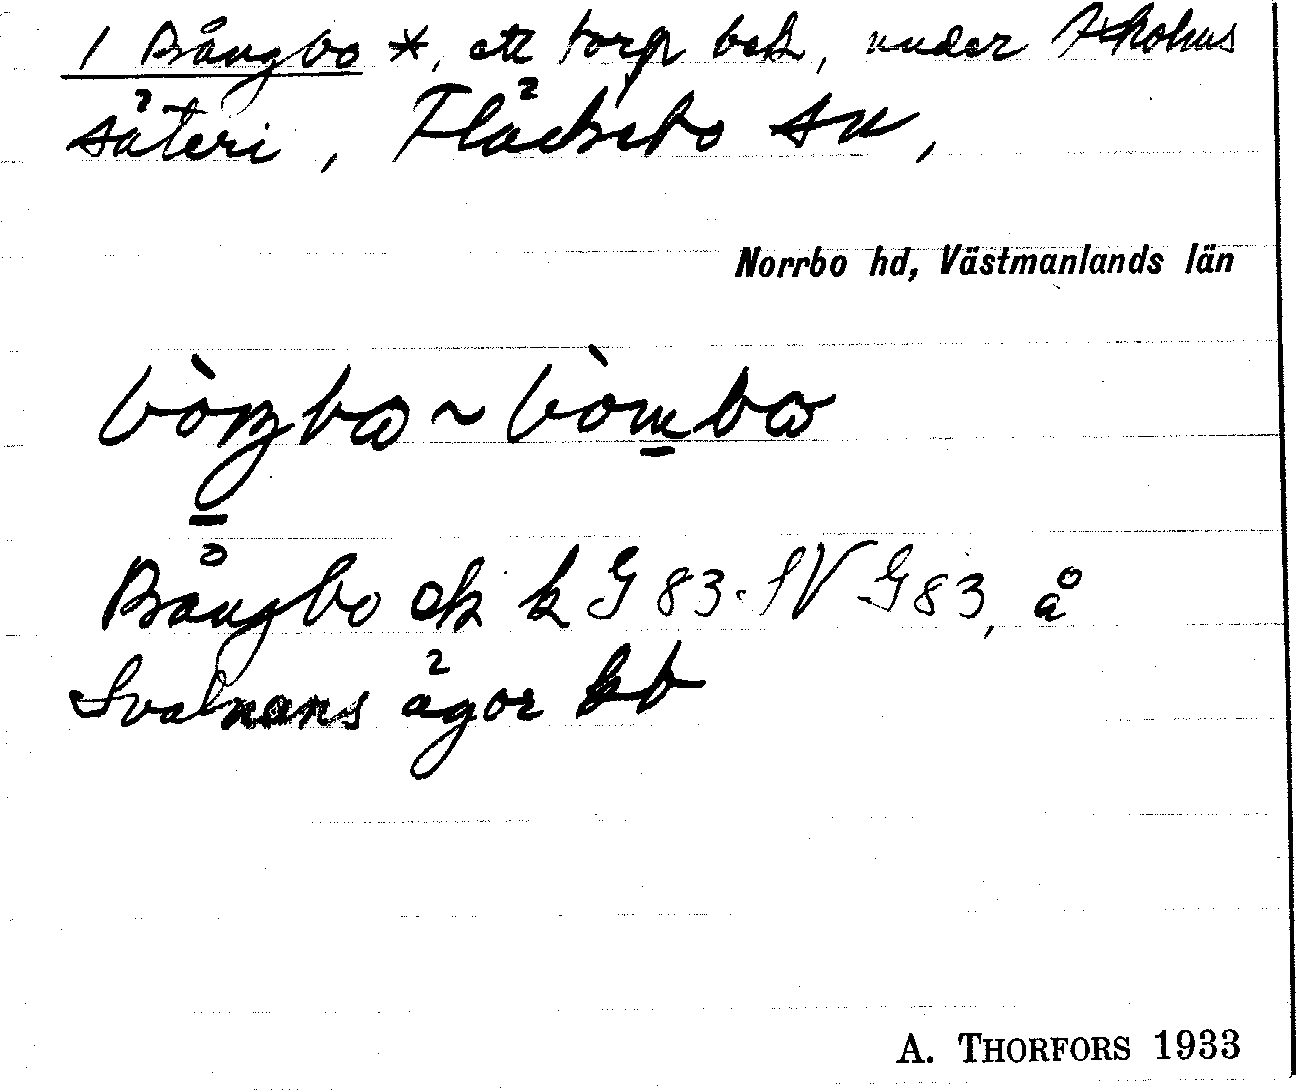 1 Bångbo *, ett torp bek, under Skohus
säteri, Fläckebo sn,
Norrbo hd, Västmanlands län
bòŋbω ~ bòmbω
Bångbo ek k G 83. SV G83, å
Svalnans ägor kb
A. THORFORS 1933